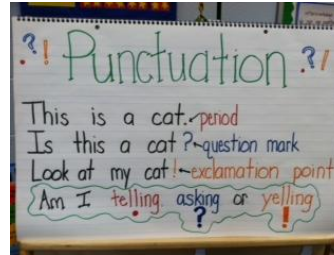 ?! Punctuation ?!
This is a cat. period
Is this a cat? question mark
Look at my cat! exclamation point
Am I telling. asking or yelling
? !